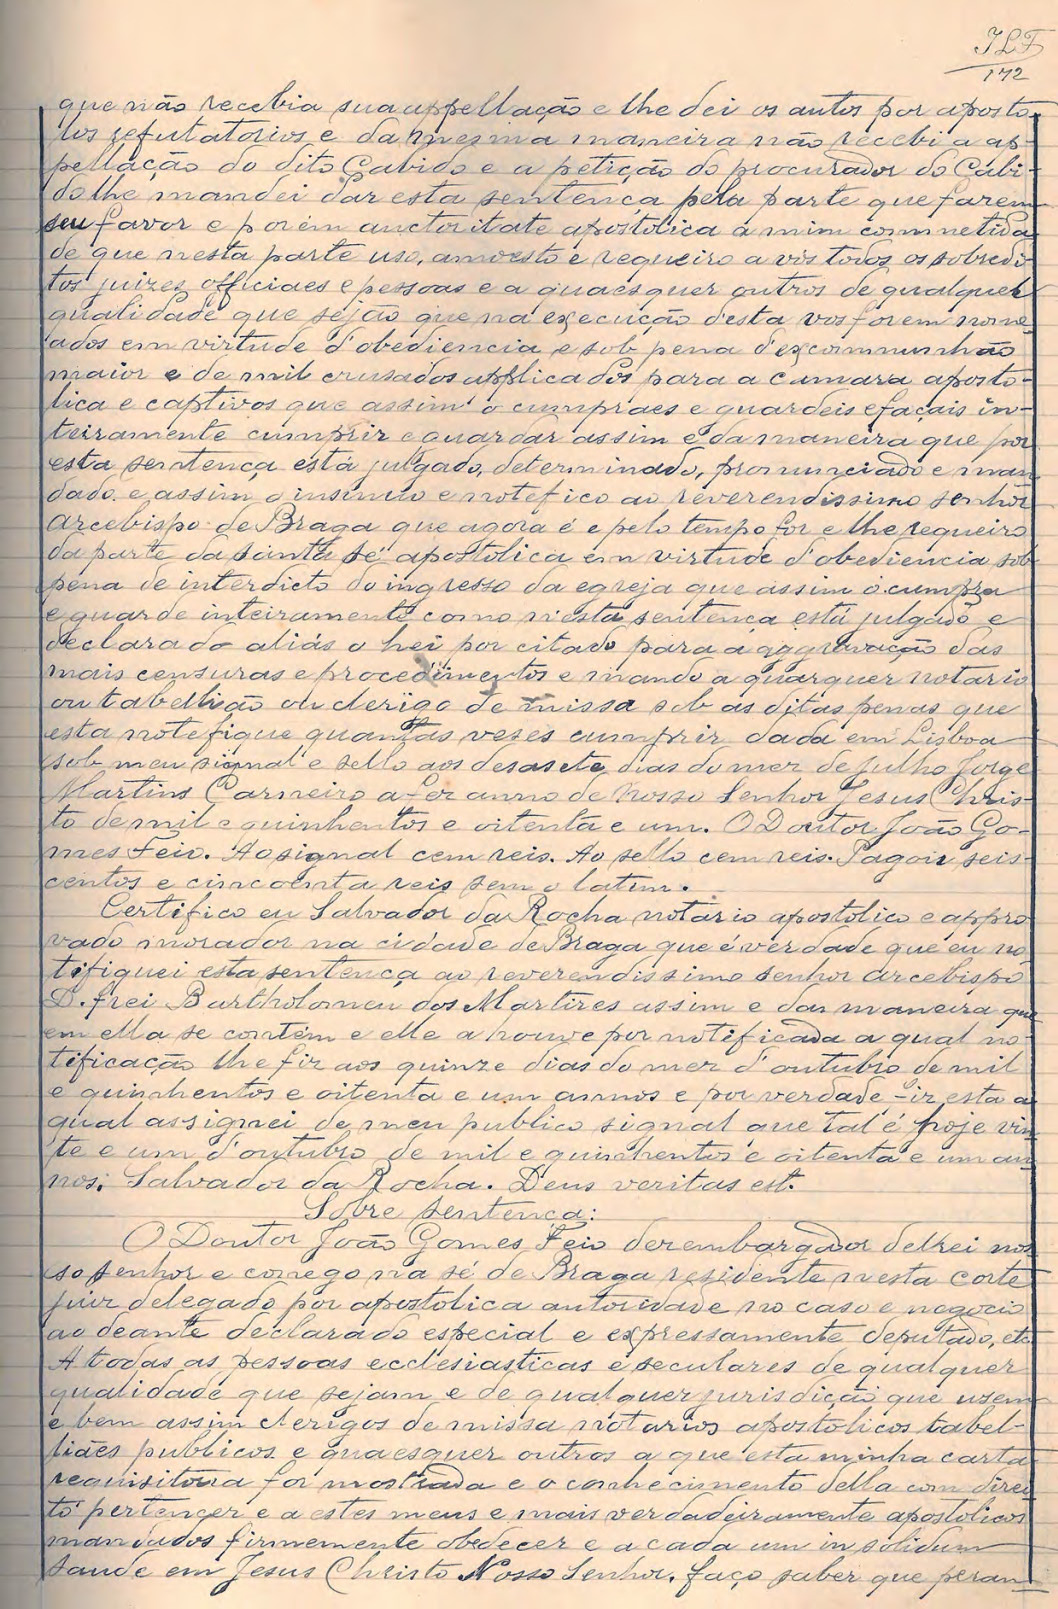 JLF
172
que não recebia sua appellação e lhe dei os autos por aposto-
los refutatorios e da mesma maneira não recebi a ap-
pellação do dito Cabido e a petição do procurador do Cabi-
do lhe mandei dar esta sentença pela parte que faz em
seu favor e porém auctoritate apostolica a mim commetida
de que nesta parte uso, amoesto e requeiro a vis todos os sobredi-
tos juizes officiaes e pessoas e a quaesquer outros de qualquer
qualidade que sejão que na execução d'esta vos forem nome-
ados em virtude d'obediencia e sob pena d'excommunhão
maior e de mil crusados applicados para a camara aposto-
lica e captivos que assim o cumpraes e guardeis e façais in-
teiramente cumprir e guardar assim e da maneira que por
esta sentença está julgado, determinado, pronunciado e man-
dado e assim o insinuo e notefico ao reverendissimo senhor
Arcebispo de Braga que agora é e pelo tempo for e lhe requeiro
da parte da santa sé apostolica em virtude d'obediencia sob
pena de interdicto do ingresso da egreja que assim o cumpra
e guarde inteiramente como n'esta sentença está julgado e
declarado aliás o hei por citado para a aggravação das
mais censuras e procedimentos e mando a quarquer notario
ou tabellião ou clerigo de missa sob as ditas penas que
esta notefique quantas veses cumprir dada em Lisboa
sob meu signal e sello aos desasete dias do mez de Julho Jorge
Martins Carneiro a fez anno de Nosso Senhor Jesus Chris-
to de mil e quinhentos e oitenta e um. O Doutor João Go-
mes Feio. Ao signal cem reis. Ao sello cem reis. Pagou seis-
centos e cincoenta reis sem o latim.
Certifico eu Salvador da Rocha notario apostolico e appro-
vado morador na cidade de Braga que é verdade que eu no-
tifiquei esta sentença ao reverendissimo senhor arcebispo
D. frei Bartholomeu dos Martires assim e da maneira que
em ella se contém e elle a houve por notificada a qual no-
tificação lhe fiz aos quinze dias do mez d'outubro de mil
e quinhentos e oitenta e um annos e por verdade fiz esta a
qual assignei de meu publico signal que tal é hoje vin-
te e um d'outubro de mil e quinhentos e oitenta e um an-
nos: Salvador da Rocha. Deus veritas est.
Sobre sentença:
O Doutor João Gomes Feio dezembargador delrei nos-
so senhor e conego na sé de Braga residente nesta corte
juiz delegado por apostolica autoridade no caso e negocio
ao deante declarado especial e expressamente deputado, etc
A todas as pessoas ecclesiasticas e seculares de qualquer
qualidade que sejam e de qualquer jurisdicção que usem
e bem assim clerigos de missa notarios apostolicos tabel-
liães publicos e quaesquer outros a que esta minha carta
requisitoria for mostrada e o conhecimento della com direi-
to pertencer e a estes meus e mais verdadeiramente apostolicos
mandados firmemente obedecer e a cada um in solidum
saude em Jesus Christo Nosso Senhor. Faço saber que peran-